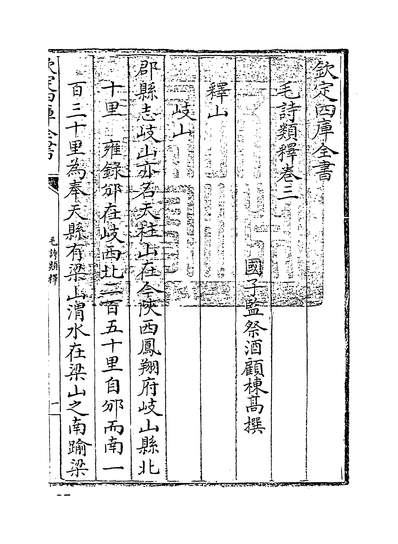 欽定四庫全書
毛詩類釋卷三
國子監祭酒顧棟高撰
釋山
岐山
郡縣志岐山亦名天柱山在今陜西鳳翔府岐山縣北
十里 雍錄邠在岐西北二百五十里自邠而南一
百三十里為奉天縣有梁山渭水在梁山之南踰梁
欽定四庫全書
毛詩類釋
一